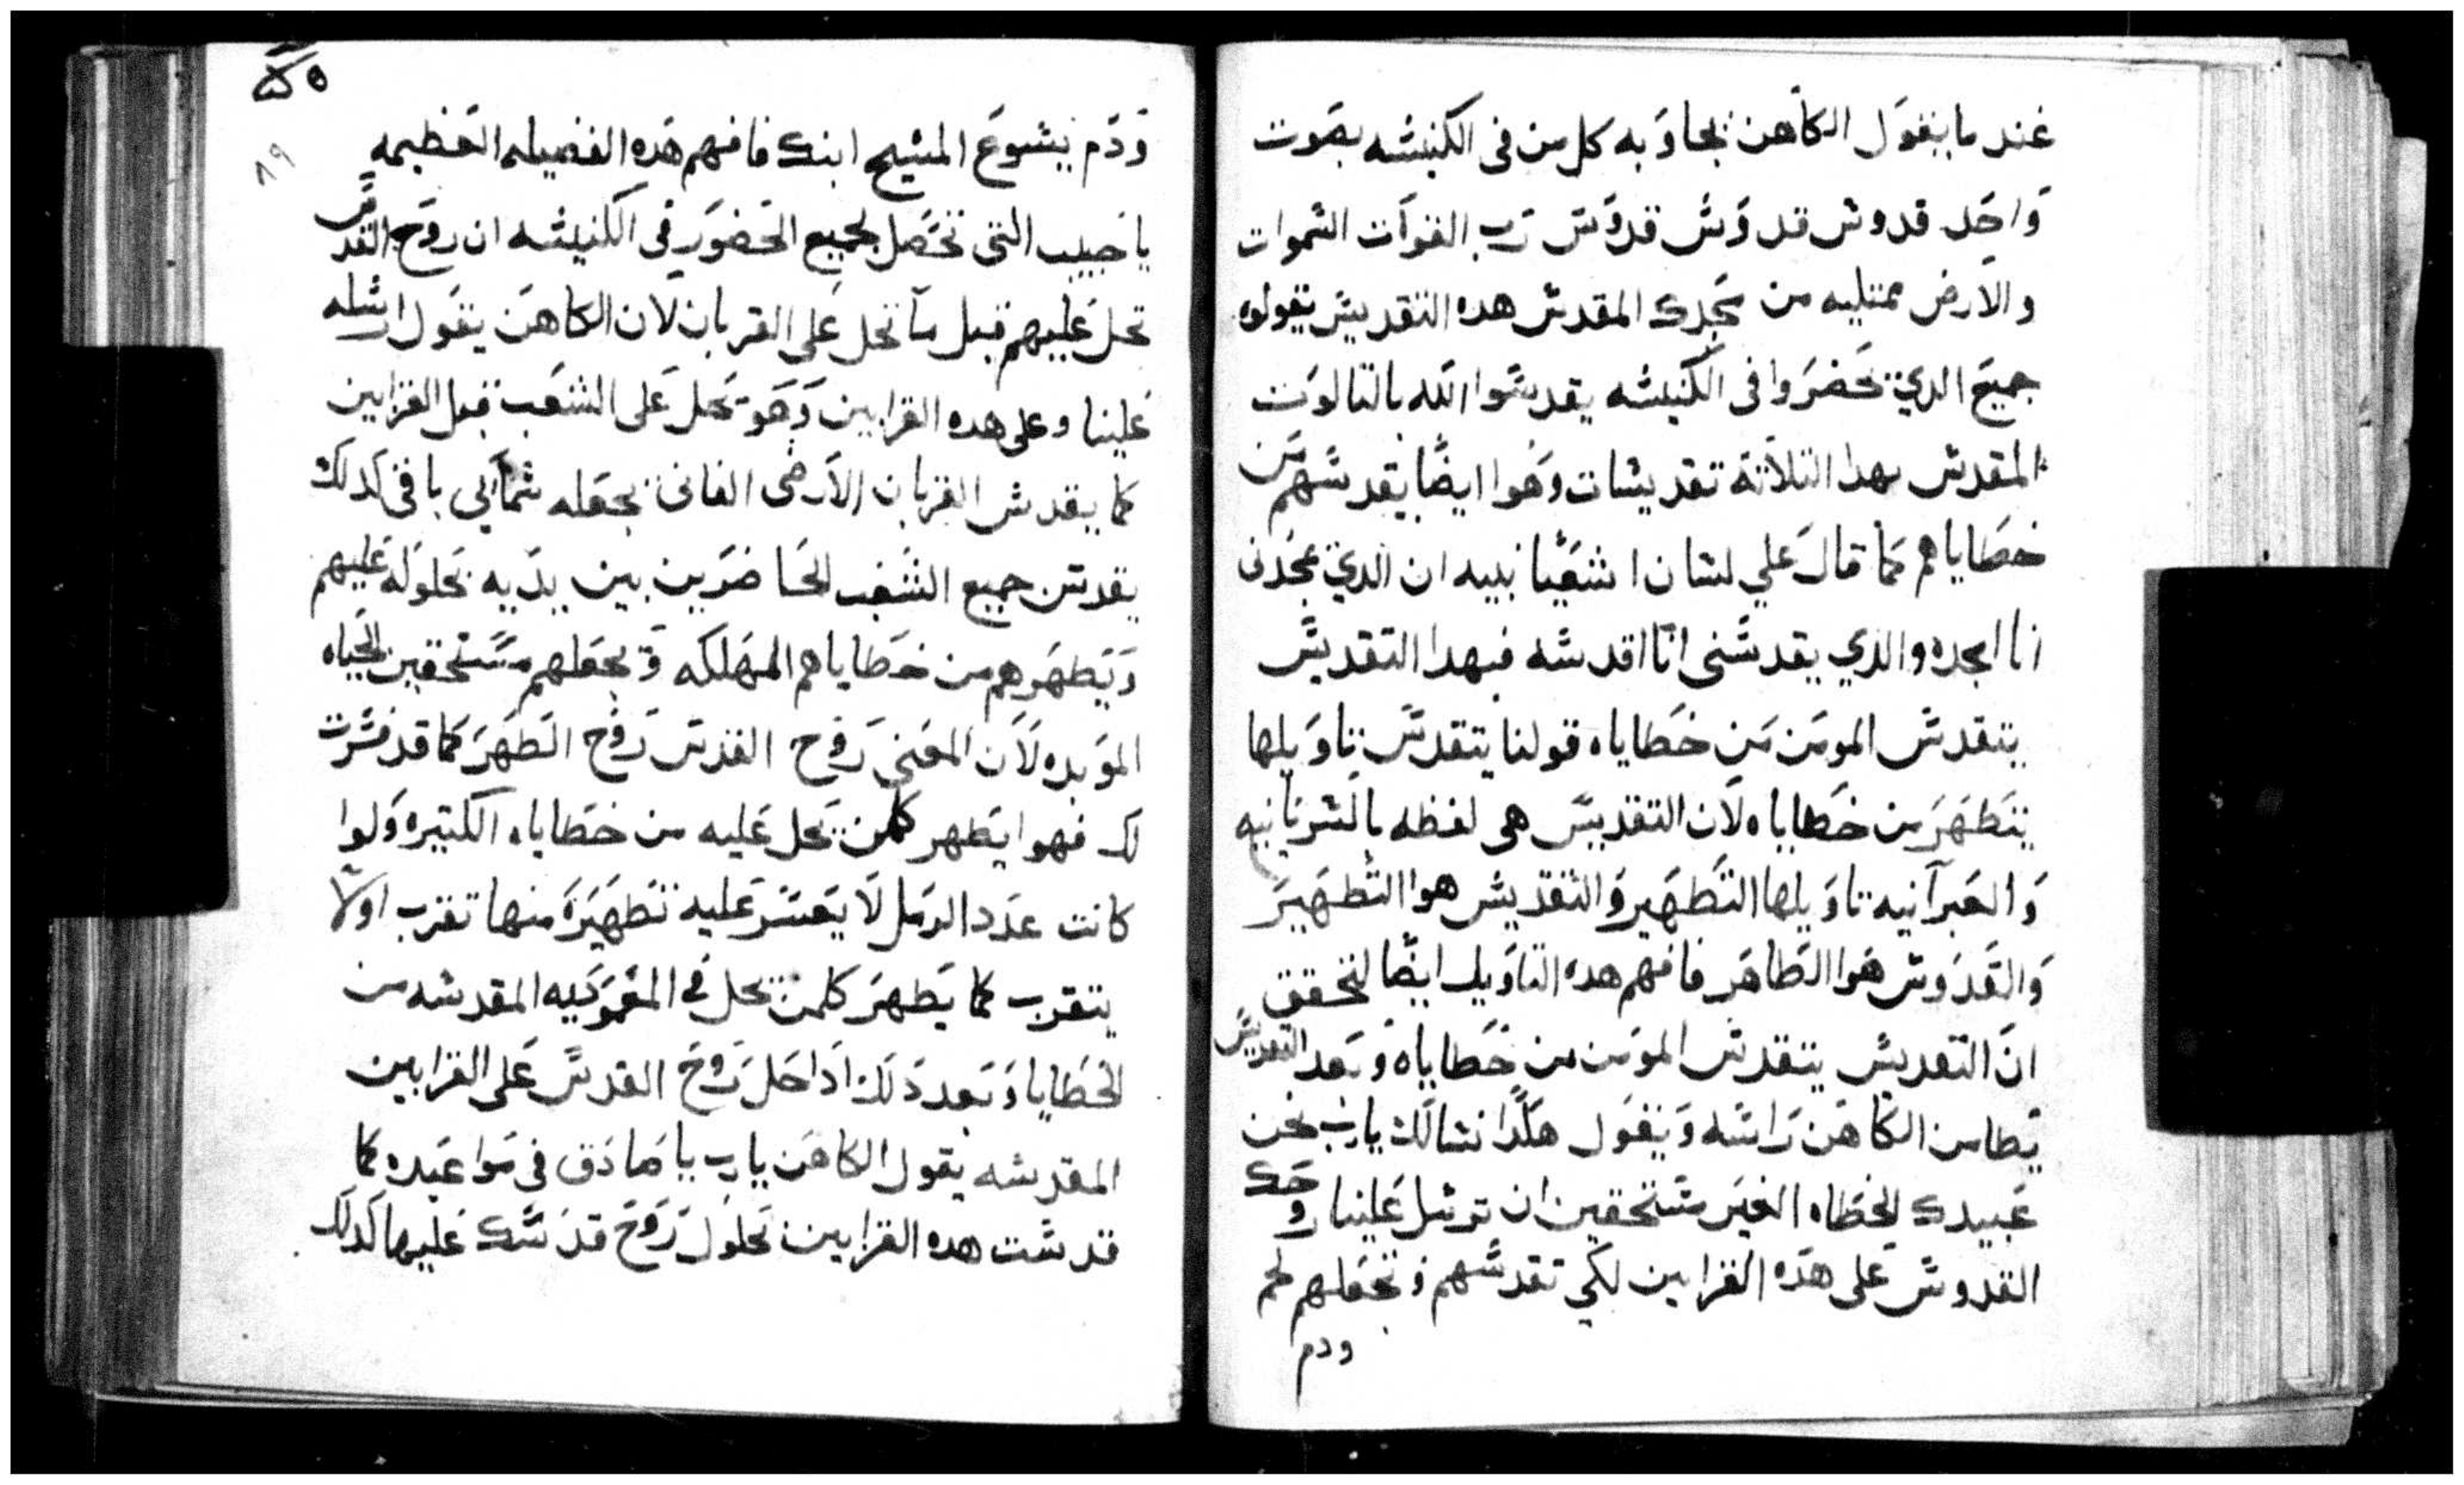 عند ما يقول الكاهن يجاوبه كل من فى الكنيسه بصوت
واحد قدوش قدوش قدوش رب القوات السموات
والارض ممتليه من مجدك المقدس هده التقديس يقولوه
جميع الدي يحضروا فى الكنيسه يقدسوا الله بالتالوت
المقدس بهدا التلاتة تقديسات وهوا ايضا يقدسهم من
خطاياهم كما قال علي لسان اشعيا نبيه ان الدي يمجدنى
انا امجده والدي يقدسنى انا اقدسه فبهدا التقديس
يتقدس المومن من خطاياه قولنا يتقدس تاويلها
يتطهر من خطاياه لان التقديس هى لفظه بالسريانيه
والعبرآنيه تاويلها التطهير والتقديس هوا التطهير
والقدوس هوا الطاهر فافهم هده التاويل ايضا لتحقق
ان التقديس يتقدس المومن من خطاياه وبعد التقديس
يطامن الكاهن راسه ويقول هكدا نسالك يارب نحن
عبيدك الخطاه الغير مستحقين ان ترسل علينا روحك
القدوس على هده القرابين لكي تقدسهم وتجعلهم لحم
ودم
ودم يشوع المسيح ابنك فافهم هده الفضيله العظيمه
يا حبيب التى تحصل لجميع الحضور فى الكنيسه ان روح القدس
تحل عليهم قبل ما تحل على القربان لان الكاهن يقول ارسله
علينا وعلى هده القرابين وهو يحل على الشعب قبل القرابين
كما يقدس القربان الارضى الفانى يجعله سمآيى باقى كدلك
يقدس جميع الشعب الحاضرين بين يديه بحلوله عليهم
ويطهرهم من خطاياهم المهلكه ويجعلهم مستحقين الحياه
الموبده لان المعنى روح القدس روح الطهر كما قد فسرت
لك فهوا يطهر كلمن يحل عليه من خطاياه الكتيره ولوا
كانت عدد الرمل لا يعسر عليه تطهيره منها تقرب اولا
يتقرب كما يطهر كلمن يحل فى المعموديه المقدسه من
الخطايا وبعد دلك ادا حل روح القدس على القرابين
المقدسه يقول الكاهن يارب يا صادق فى مواعيده كما
قدست هده القرابين بحلول روح قدسك عليها كدلك
٨٩